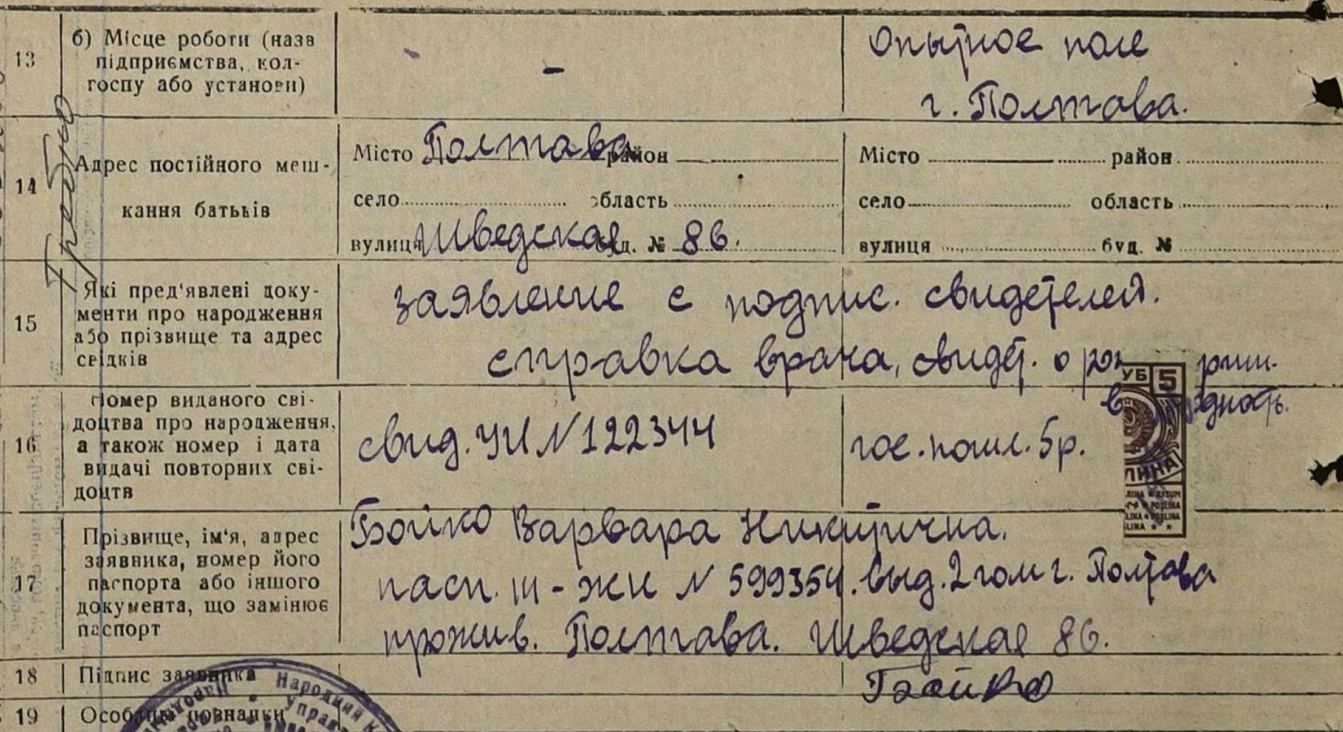 13
б) Місце роботи (назв
підприємства, кол-
госпу або установи)
-
Опытное поле
г. Полтава.
14
Адрес постійного меш-
кання батьків
Місто Полтава район
село область
вулиця Шведская буд. № 86.
Місто район
село область
вулиця буд. №
15
Які пред'явлені доку-
менти про народження
або прізвище та адрес
свідків
заявление с подпис. свидетелей.
справка врача, свидет. о
16
Номер виданого сві-
доцтва про народження,
а також номер і дата
видачі повторних сві-
доцтв
свид. УИ N 122344
гос. пошл. 5р.
УБ 5
17
Прізвище, ім'я, адрес
заявника, номер його
паспорта або іншого
документа, що замінює
паспорт
Бойко Варвара Никитична.
пасп. III - жи N 599354. выд. 2 гом г. Полтава
прожив. Полтава. Шведская 86.
18
Підпис заявника
Бойко
19
Особливі познаки
Народний К
Управ